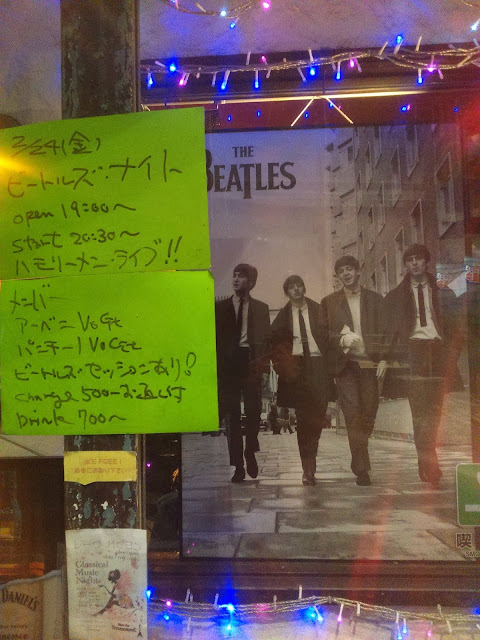 3/24(金)
ビートルズ・ナイト
open 19:00〜
start 20:30〜
ハモリーメン・ライブ!!
メンバー
アーベン Vo Gt
パンチー! Vo Gt
ビートルズ・セッションあり!
charge 500-
Drink 700〜
THE
BEATLES
Classical
Music
Nights
DANIEL'S
喫